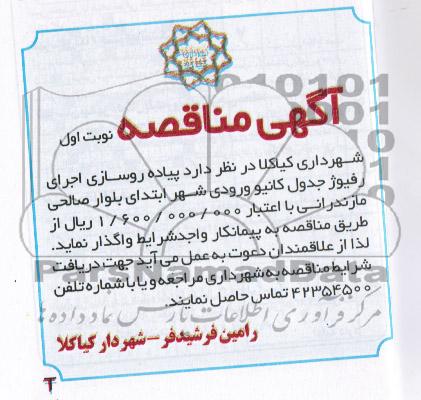 آگهی مناقصه نوبت اول
شهرداری کیاکلا در نظر دارد پیاده روسازی اجرای
رفیوژ جدول کانیو ورودی شهر ابتدای بلوار صالحی
مازندرانی با اعتبار ۱/۶۰۰/۰۰۰/۰۰۰ ریال از
طریق مناقصه به پیمانکار واجدشرایط واگذار نماید.
لذا از علاقمندان دعوت به عمل می آید جهت دریافت
شرایط مناقصه به شهرداری مراجعه و یا با شماره تلفن
۴۲۳۵۴۵۰۰ تماس حاصل نمایند.
رامین فرشیدفر – شهردار کیاکلا
ParsNamadData
مرکز فرآوری اطلاعات پارس نماد داده ها